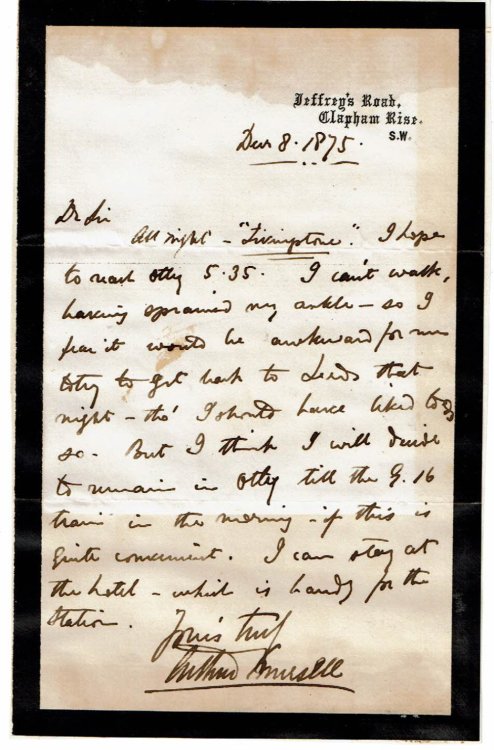 Jeffrey's Road,
Clapham Rise.
S.W.
Decr 8. 1875.
Dr Sir
All right - "Livingstone". I hope
to reach Otley 5.35. I can't walk,
having sprained my ankle - so I
fear it would be awkward for me
to try to get back to Leeds that
night - tho' I should have liked to do
so. But I think I will decide
to remain in Otley till the 9.16
train in the morning - if this is
quite convenient. I can stay at
the hotel - which is handy for the
Station.
Yours truly
Arthur Mursell